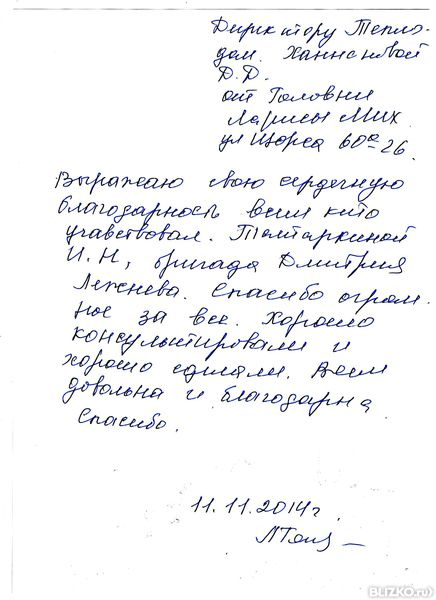 Директору Тепло-
дом. Ханнановой
Д.Д.
от Головни
Ларисы Мих.
ул Щорса 60а-26.
Выражаю свою сердечную
благодарность всем кто
учавствовал. Таттаркиной
И.Н, бригада Дмитрия
Лежнева. Спасибо огром
ное за все. Хорошо
консультировали и
хорошо сделали. Всем
довольна и благодарна
Спасибо.
11.11.2014г.
BLIZKO.ru